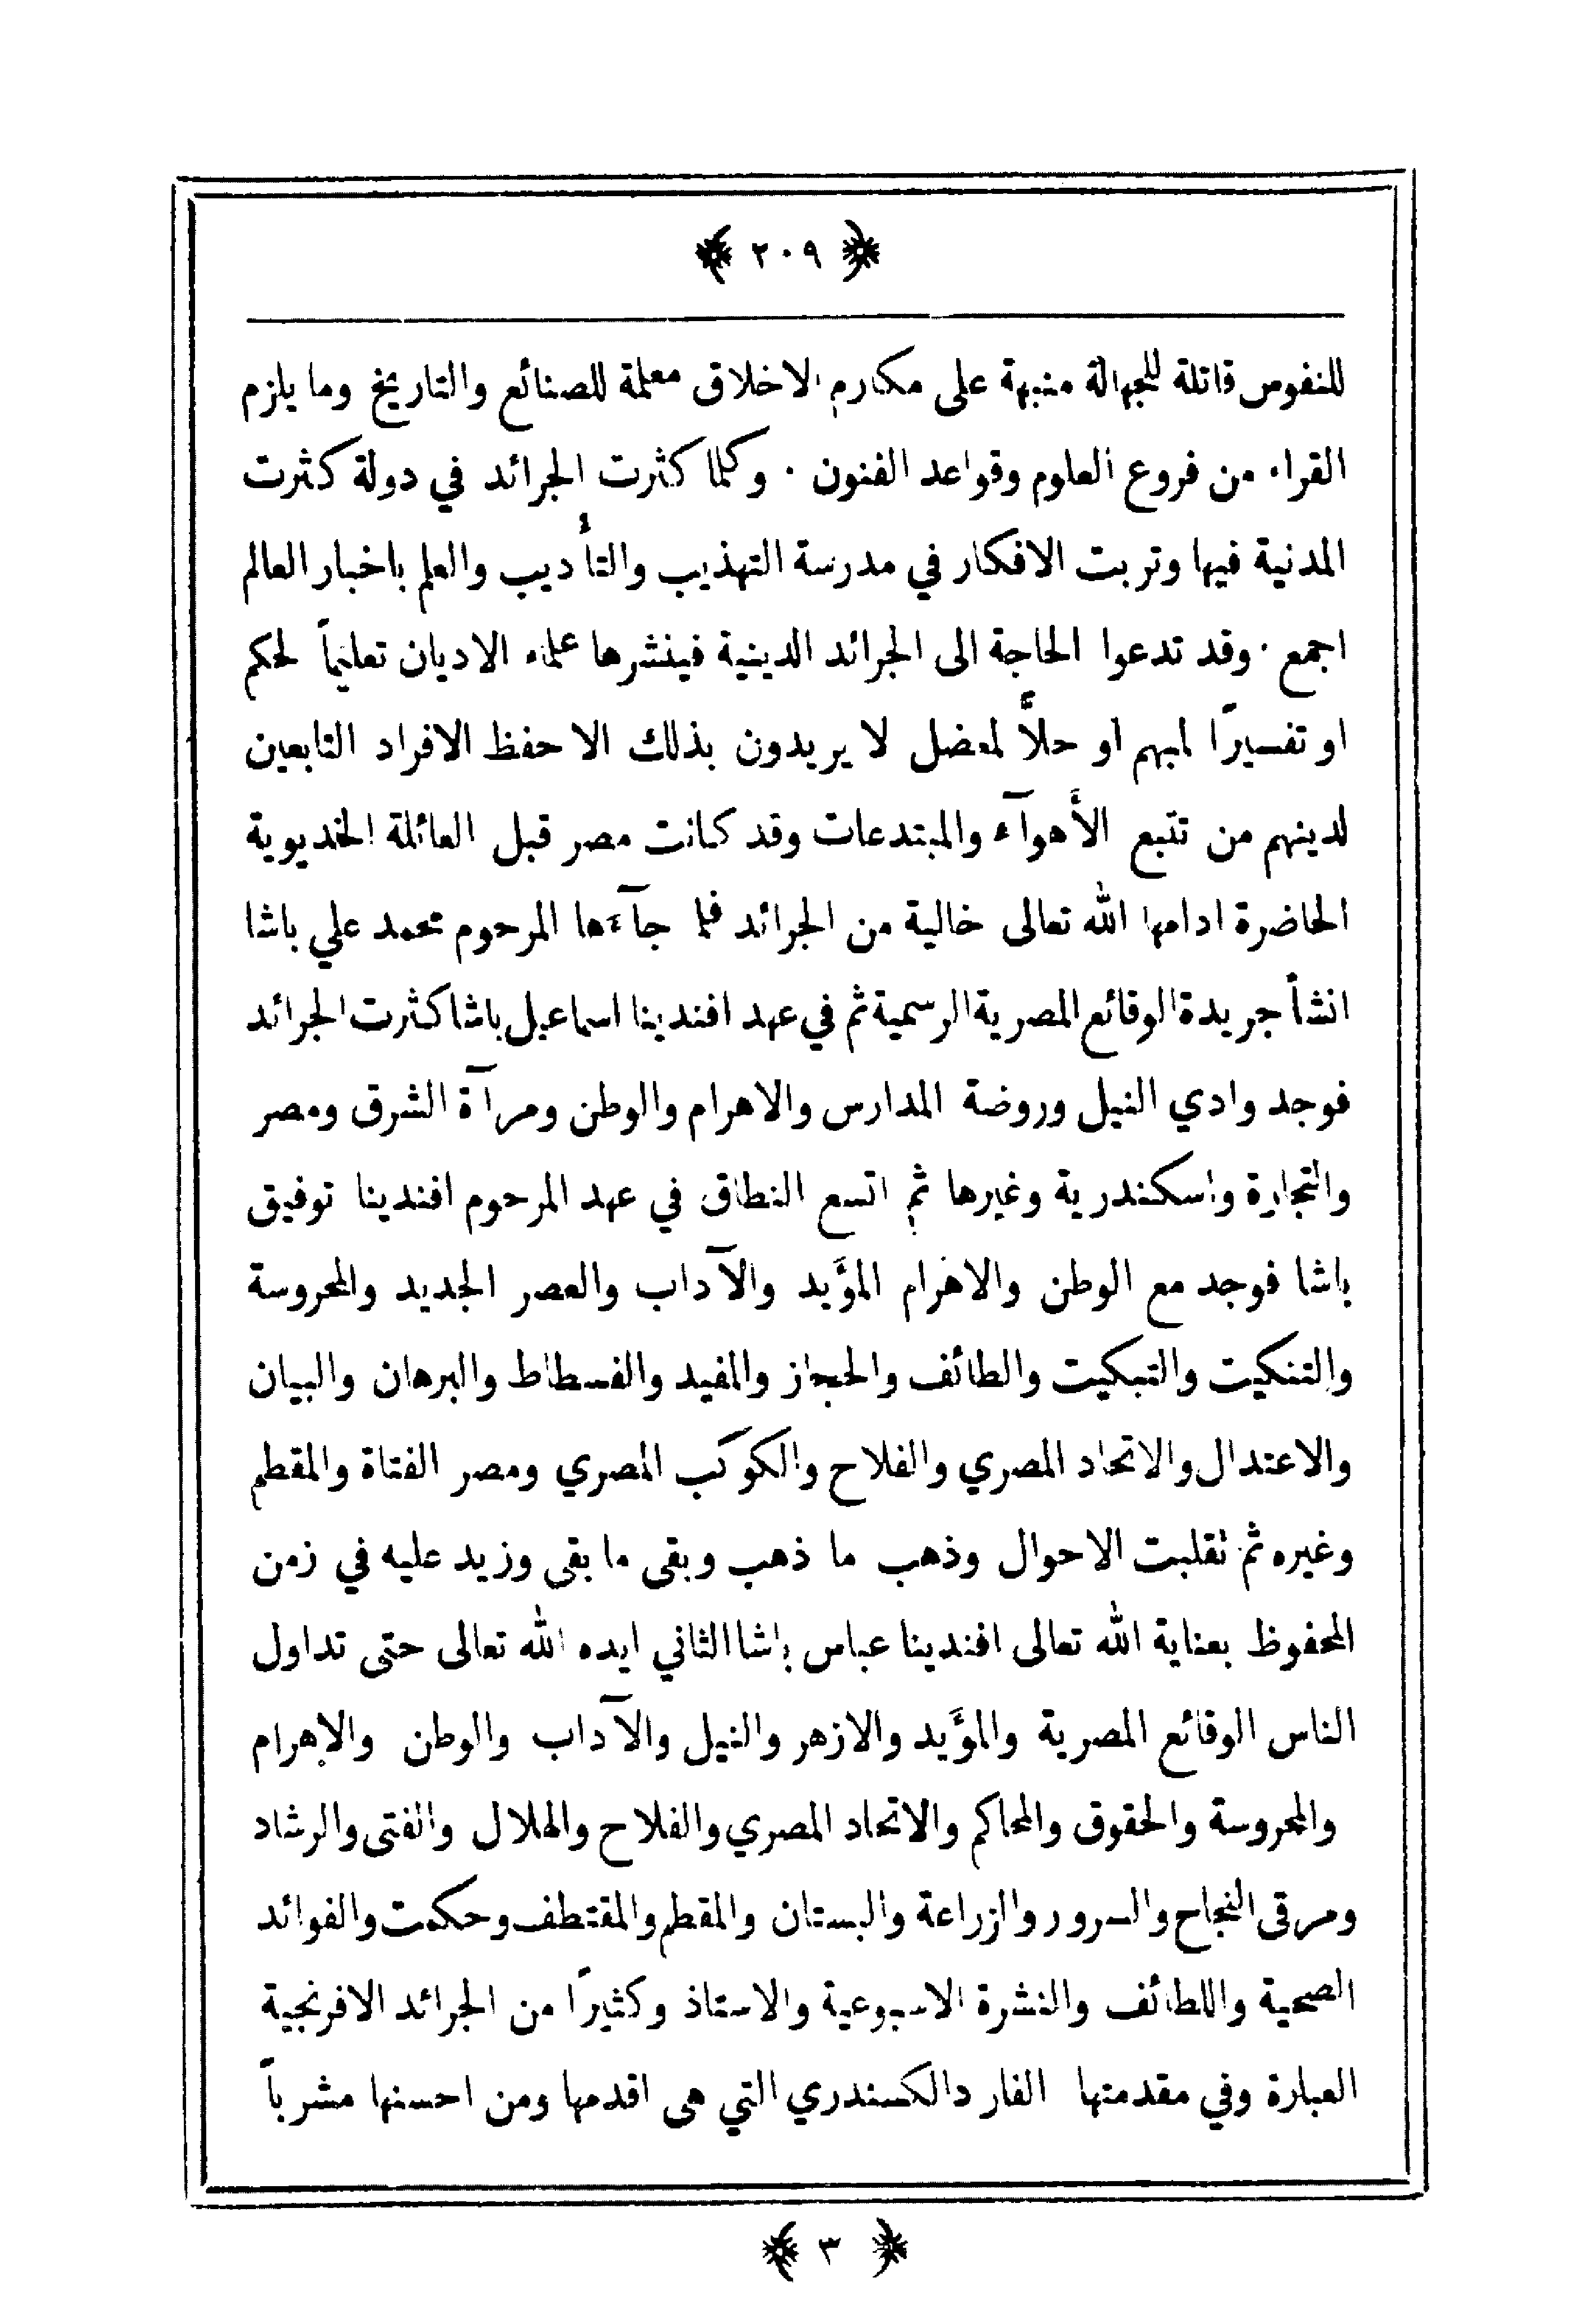 ﴿ ٢٠٩ ﴾
للنفوس قاتلة للجهالة منبهة على مكارم الاخلاق معلمة للصنائع والتاريخ وما يلزم
القراء من فروع العلوم وقواعد الفنون . وكلما كثرت الجرائد في دولة كثرت
المدنية فيها وتربت الافكار في مدرسة التهذيب والتأديب والعلم باخبار العالم
اجمع . وقد تدعوا الحاجة الى الجرائد الدينية فينشرها علماء الاديان تعليماً لحكم
او تفسيرًا لمبهم او حلاً لمعضل لا يريدون بذلك الا حفظ الافراد التابعين
لدينهم من تتبع الأَهوآء والمبتدعات وقد كانت مصر قبل العائلة الخديوية
الحاضرة ادامها الله تعالى خالية من الجرائد فلما جآءها المرحوم محمد علي باشا
انشأ جريدة الوقائع المصرية الرسمية ثم في عهد افندينا اسماعيل باشا كثرت الجرائد
فوجد وادي النيل وروضة المدارس والاهرام والوطن ومرآة الشرق ومصر
والتجارة واسكندرية وغيرها ثم اتسع النطاق في عهد المرحوم افندينا توفيق
باشا فوجد مع الوطن والاهرام المؤَيد والآداب والعصر الجديد والمحروسة
والتنكيت والتبكيت والطائف والحجاز والمفيد والفسطاط والبرهان والبيان
والاعتدال والاتحاد المصري والفلاح والكوكب المصري ومصر الفتاة والمقطم
وغيره ثم تقلبت الاحوال وذهب ما ذهب وبقى ما بقى وزيد عليه في زمن
المحفوظ بعناية الله تعالى افندينا عباس باشا الثاني ايده الله تعالى حتى تداول
الناس الوقائع المصرية والمؤَيد والازهر والنيل والآداب والوطن والاهرام
والمحروسة والحقوق والمحاكم والاتحاد المصري والفلاح والهلال والفتى والرشاد
ومرقى النجاح والسرور والزراعة والبستان والمقطم والمقتطف وحكمت والفوائد
الصحية واللطائف والنشرة الاسبوعية والاستاذ وكثيرًا من الجرائد الافرنجية
العبارة وفي مقدمتها الفار دالكسندري التي هى اقدمها ومن احسنها مشرباً
﴿ ٣ ﴾